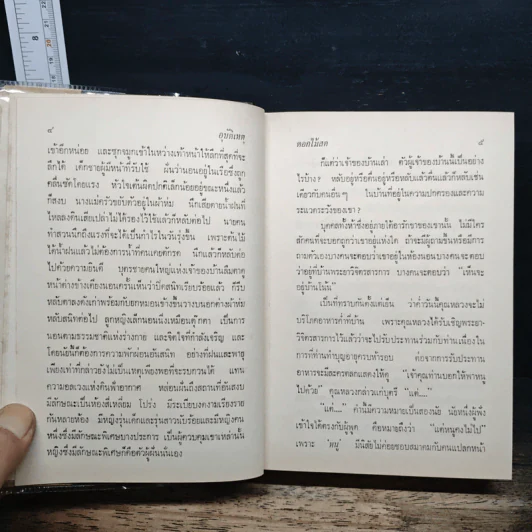 8
20
21
22
๘
อุบัติเหตุ
เข้าอีกหน่อย และซุกจมูกเข้าในหว่างเท้าหน้าให้ลึกที่สุดที่จะ
ลึกได้ เด็กชายผู้มีหน้าที่รับใช้ ฝันว่านอนอยู่ในเรือซึ่งถูก
คลื่นซัดโดยแรง หัวใจเต้นผิดปกติเล็กน้อยอยู่ขณะหนึ่งแล้ว
ก็สงบ นางแม่ครัวขยับตัวอยู่ในผ้าห่ม นึกเสียดายน้ำฝนที่
ไหลลงดินเสียเปล่าไม่ได้รองไว้ใช้แล้วก็หลับต่อไป นายคน
ทำสวนนึกถึงแรงที่จะได้เป็นกำไรในวันรุ่งขึ้น เพราะต้นไม้
ได้น้ำฝนแล้วไม่ต้องการน้ำที่คนเคยตักรด นึกแล้วก็หลับต่อ
ไปด้วยความยินดี บุตรชายคนใหญ่แห่งเจ้าของบ้านลืมตาดู
หน้าต่างข้างเตียงนอนครั้นเห็นว่าปิดสนิทเรียบร้อยแล้ว ก็รีบ
หลับตาลงดังเก่าพร้อมกับยกหมอนข้างขึ้นวางบนอกต่างผ้าห่ม
หลับสนิทต่อไป ลูกหญิงเล็กนอนนิ่งเหมือนตุ๊กตา เป็นการ
นอนตามธรรมชาติแห่งร่างกาย และจิตใจที่กำลังเจริญ และ
โดยฉันนี้ก็ต้องการความพักผ่อนอันสนิท อย่างที่ฝนและพายุ
เพียงเท่าที่กล่าวลงไม่เป็นเหตุเพียงพอที่จะรบกวนได้ แทน
ความอลเวงแห่งดินฟ้าอากาศ หล่อนฝันถึงสถานที่อันสงบ
มีลักษณะเป็นห้องสี่เหลี่ยม โปร่ง มีระเบียบงดงามเรียงราย
กันหลายห้อง มีหญิงรุ่นเด็กและรุ่นสาวนับร้อยและมีหญิงคน
หนึ่งซึ่งมีลักษณะพิเศษบางประการ เป็นผู้ควบคุมเขาเหล่านั้น
หญิงซึ่งมีลักษณะพิเศษก็คือตัวผู้ฝันนั่นเอง
ดอกไม้สด
๙
ก็แต่ว่าเจ้าของบ้านเล่า ตัวผู้เจ้าของบ้านนี้เป็นอย่าง
ไรบ้าง ? หลับอยู่หรือตื่นอยู่หรือหลับแล้วตื่นแล้วก็หลับเช่น
เดียวกับคนอื่นๆ ในบ้านที่อยู่ในความปกครองและความ
ระแวดระวังของเขา ?
บุคคลทั้งห้าซึ่งอยู่ภายใต้อารักขาของเขานั้น ไม่มีใคร
สักคนที่จะบอกถูกว่าเขาอยู่แห่งใด ถ้าจะมีผู้ถามขึ้นหรือมีการ
ถามตัวเองบางคนจะตอบว่าเขาอยู่ในห้องนอน บางคนจะตอบ
ว่าอยู่ที่บ้านพระอาจวิจตรวสการ บางคนจะตอบว่า "เห็นจะ
อยู่บ้านโน้น"
เป็นที่ทราบกันตั้งแต่เย็น ว่าค่ำวันนี้คุณหลวงจะไม่
บริโภคอาหารค่ำที่บ้าน เพราะคุณหลวงได้รับเชิญพระอา-
จวิจตรวสการไว้แล้วว่าจะไปรับประทานร่วมกับท่านเนื่องใน
การที่ท่านทำบุญอายุครบห้ารอบ ต่อจากการรับประทาน
อาหารจะมีละครตลกแสดงให้ดู "เจ้าคุณท่านบอกให้พาหนู
ไปด้วย" คุณหลวงกล่าวแก่บุตรี "แต่...."
"แต่...." คำนี้มีความหมายเป็นสองนัย นัยหนึ่งผู้ฟัง
เข้าใจได้ตรงกับผู้พูด คือหมายถึงว่า "แต่หนูคงไม่ไป"
เพราะ 'หนู' มีนิสัยไม่ค่อยชอบสมาคมกับคนแปลกหน้า